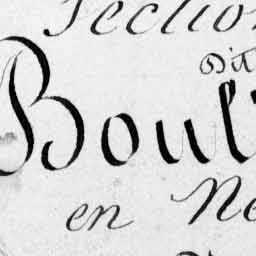 Section
dit
Boul
en Ne